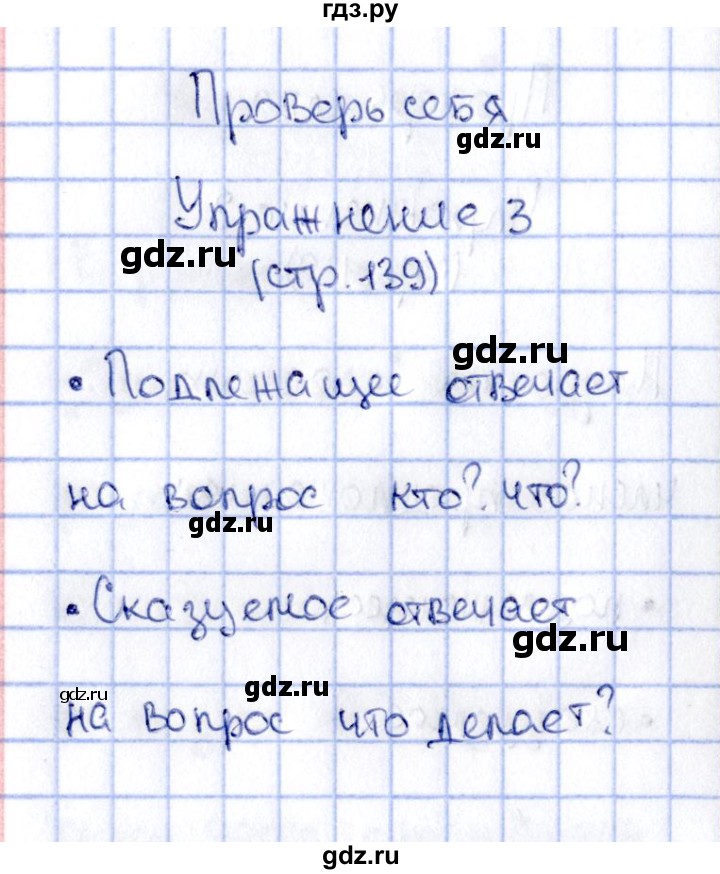 гдз.ру
Проверь себя
gdz.ru
Упражнение 3
gdz.ru
(стр. 139)
gdz.ru
• Подлежащее отвечает
на вопрос кто? что?
gdz.ru
• Сказуемое отвечает
gdz.ru
gdz.ru
gdz.ru
на вопрос что делает?
gdz.ru